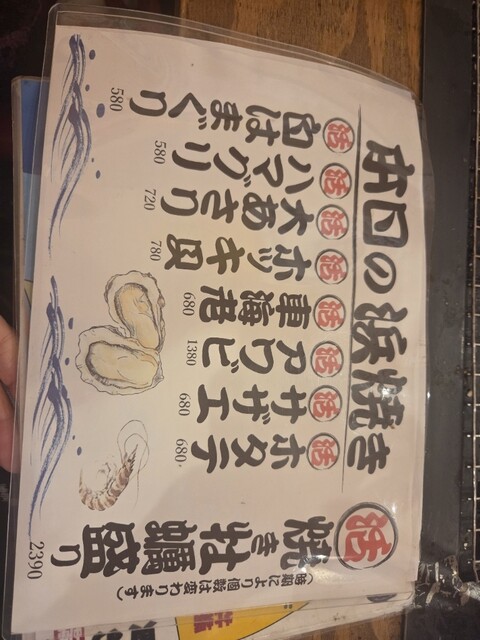 本日の浜焼き
活 白はまぐり 580
活 ハマグリ 580
活 大あさり 720
活 ホッキ貝 780
活 車海老 680
活 アワビ 1380
活 サザエ 680
活 ホタテ 680
活 焼き牡蠣盛り 2390
(時期により個数は変わります)